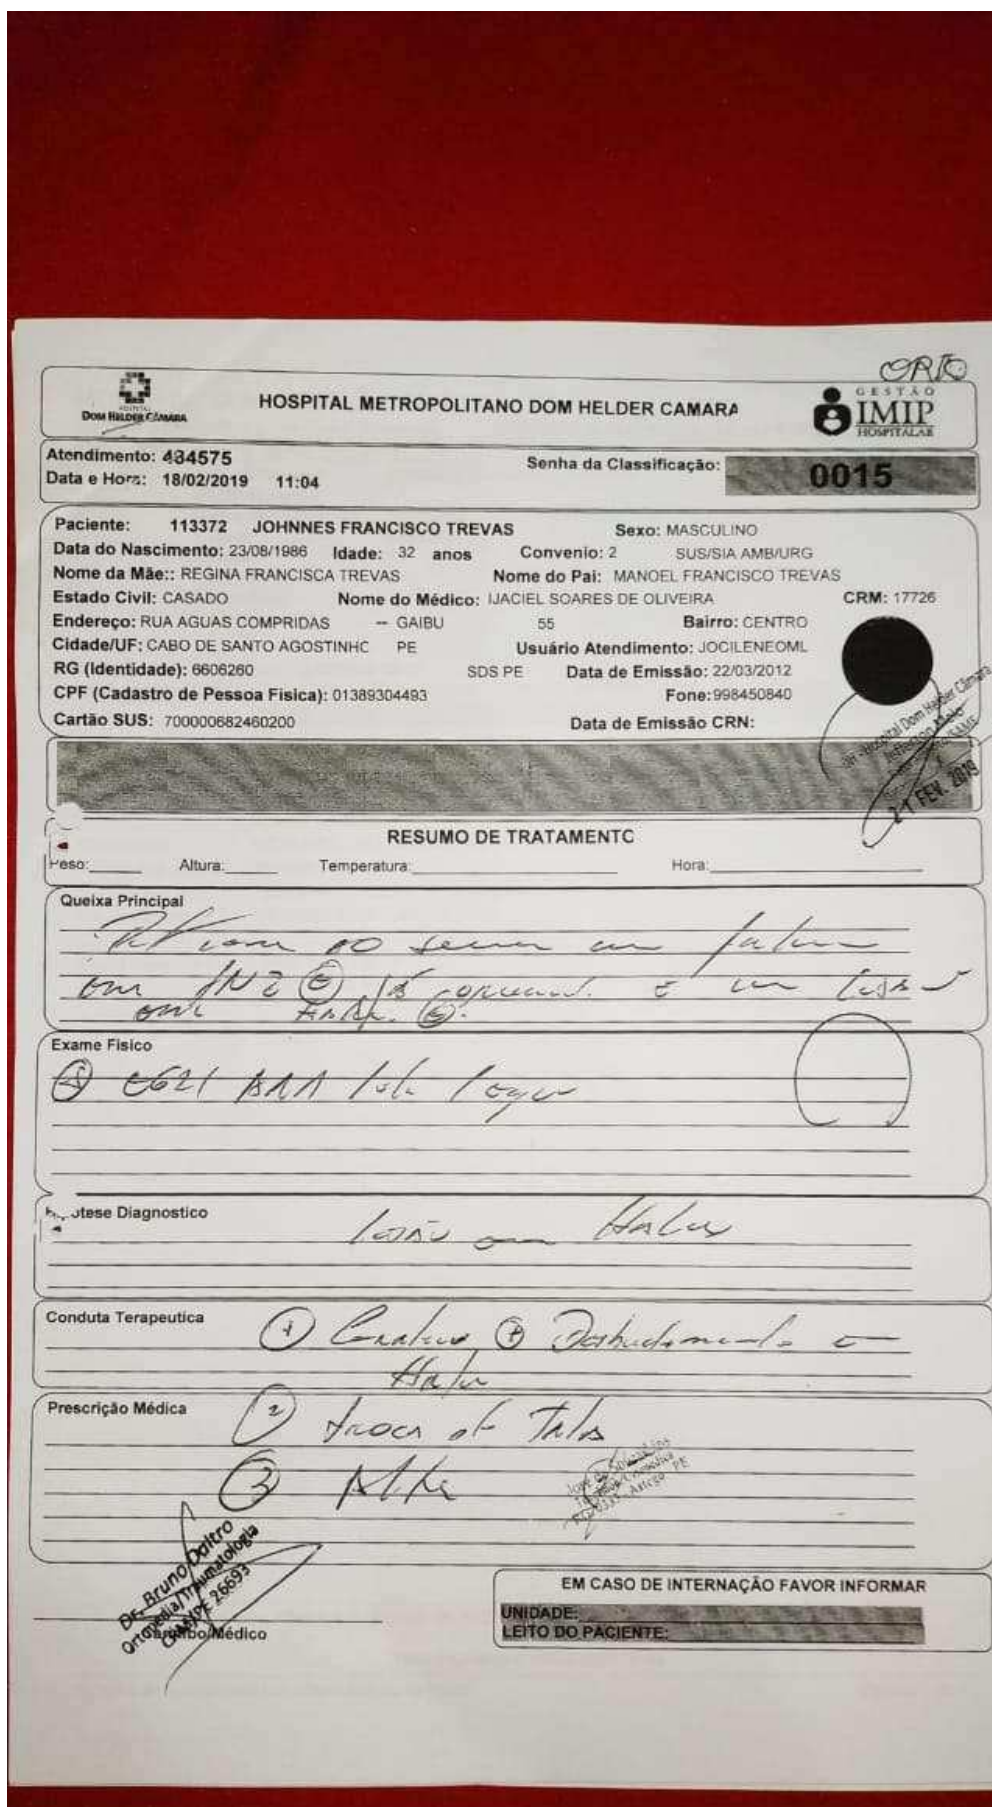 ORTO
HOSPITAL
DOM HELDER CÂMARA
HOSPITAL METROPOLITANO DOM HELDER CAMARA
GESTÃO
IMIP
HOSPITALAR
Atendimento: 434575
Senha da Classificação: 0015
Data e Hora: 18/02/2019 11:04
Paciente: 113372 JOHNNES FRANCISCO TREVAS Sexo: MASCULINO
Data do Nascimento: 23/08/1986 Idade: 32 anos Convenio: 2 SUS/SIA AMB/URG
Nome da Mãe:: REGINA FRANCISCA TREVAS Nome do Pai: MANOEL FRANCISCO TREVAS
Estado Civil: CASADO Nome do Médico: IJACIEL SOARES DE OLIVEIRA CRM: 17726
Endereço: RUA AGUAS COMPRIDAS -- GAIBU 55 Bairro: CENTRO
Cidade/UF: CABO DE SANTO AGOSTINHO PE Usuário Atendimento: JOCILENEOML
RG (Identidade): 6606260 SDS PE Data de Emissão: 22/03/2012
CPF (Cadastro de Pessoa Fisica): 01389304493 Fone: 998450840
Cartão SUS: 700000682460200 Data de Emissão CRN:
Hospital Dom Helder Câmara
21 FEV. 2019
RESUMO DE TRATAMENTO
Peso: Altura: Temperatura: Hora:
Queixa Principal
em
em
Exame Fisico
Diagnostico
lesão em Halux
Conduta Terapeutica
1 Curativo + Desbridamento
Halux
Prescrição Médica
2 troca de Tala
3 Alta
Dr. Bruno Daltro
Ortopedia/Traumatologia
CRM/PE 26693
Carimbo/Médico
EM CASO DE INTERNAÇÃO FAVOR INFORMAR
UNIDADE:
LEITO DO PACIENTE: